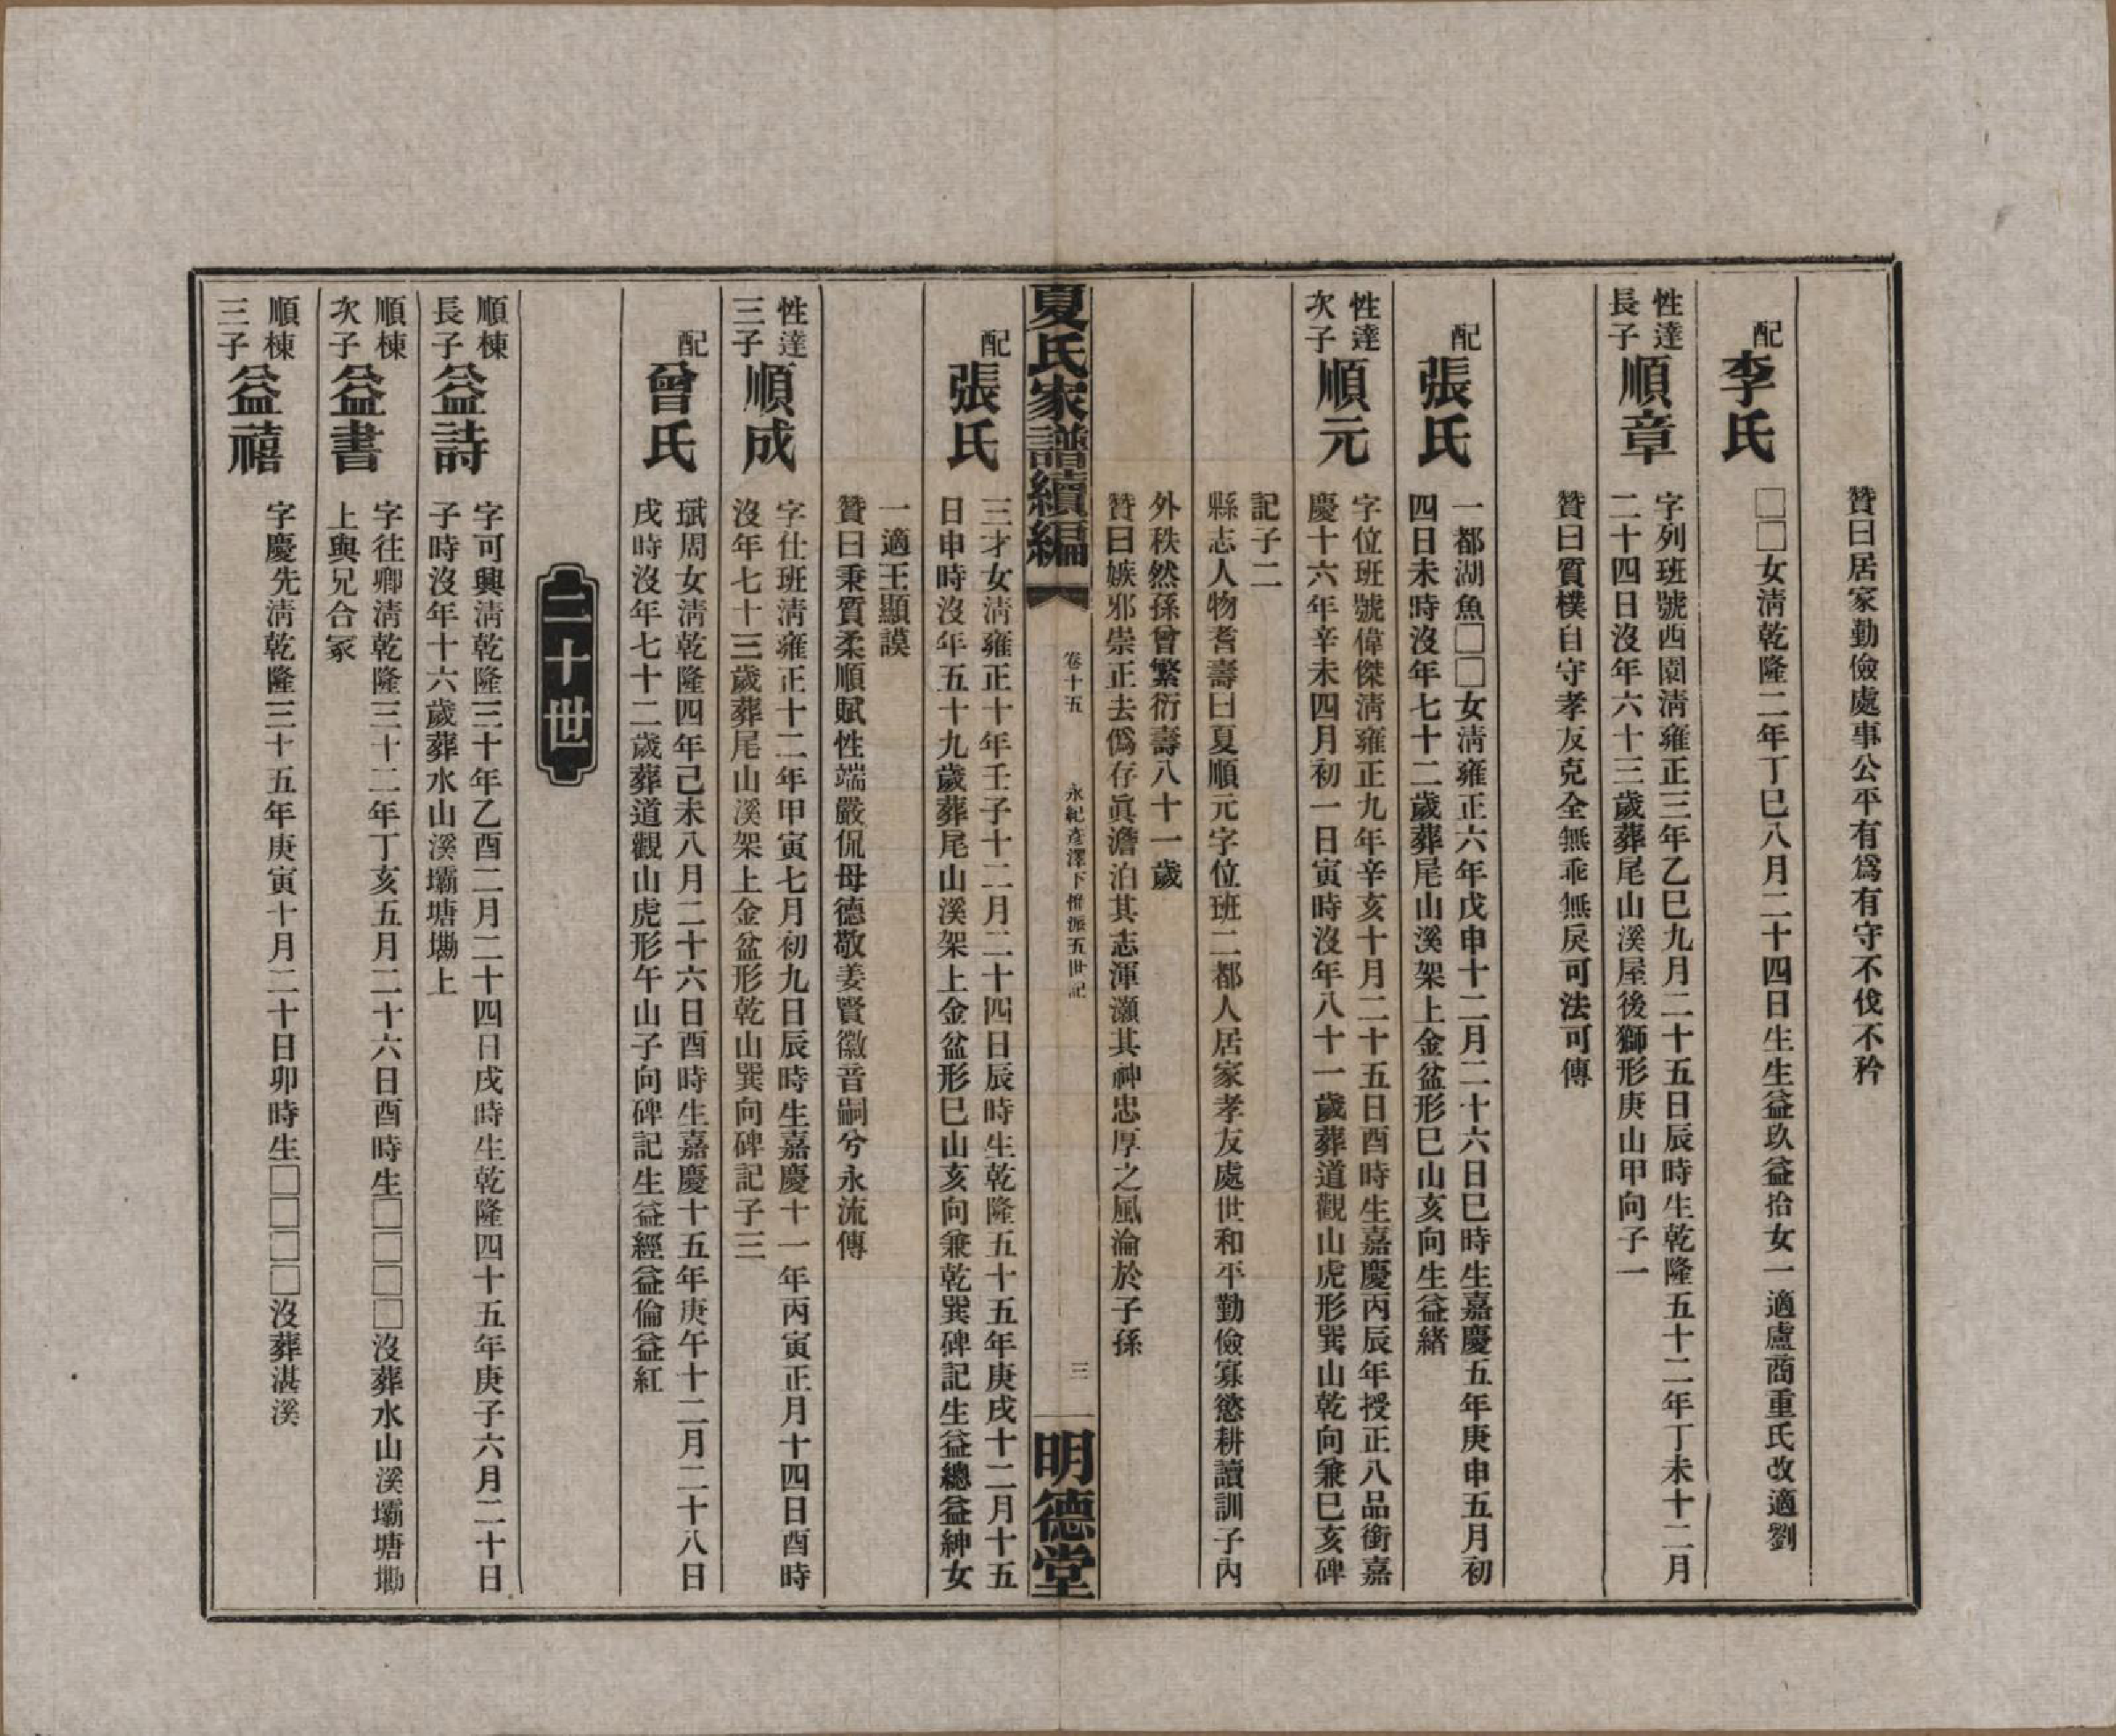 贊曰居家勤儉處事公平有爲有守不伐不矜
配
李氏
□□女淸乾隆二年丁巳八月二十四日生生益玖益拾女一適盧商重氏改適劉
性達
長子
順章
字列班號西園淸雍正三年乙巳九月二十五日辰時生乾隆五十二年丁未十二月
二十四日沒年六十三歲葬尾山溪屋後獅形庚山甲向子一
贊曰質樸自守孝友克全無乖無戾可法可傳
配
張氏
一都湖魚□□女淸雍正六年戊申十二月二十六日巳時生嘉慶五年庚申五月初
四日未時沒年七十二歲葬尾山溪架上金盆形巳山亥向生益緒
性達
次子
順元
字位班號偉傑淸雍正九年辛亥十月二十五日酉時生嘉慶丙辰年授正八品銜嘉
慶十六年辛未四月初一日寅時沒年八十一歲葬道觀山虎形巽山乾向兼巳亥碑
記子二
縣志人物耆壽曰夏順元字位班二都人居家孝友處世和平勤儉寡慾耕讀訓子內
外秩然孫曾繁衍壽八十一歲
贊曰嫉邪崇正去僞存眞澹泊其志渾灝其神忠厚之風淪於子孫
夏氏家譜續編
卷十五
永紀彥澤下 派五世記
三
明德堂
配
張氏
三才女淸雍正十年壬子十二月二十四日辰時生乾隆五十五年庚戌十二月十五
日申時沒年五十九歲葬尾山溪架上金盆形巳山亥向兼乾巽碑記生益總益紳女
一適王顯謨
贊曰秉質柔順賦性端嚴侃母德敬姜賢徽音嗣兮永流傳
性達
三子
順成
字仕班淸雍正十二年甲寅七月初九日辰時生嘉慶十一年丙寅正月十四日酉時
沒年七十三歲葬尾山溪架上金盆形乾山巽向碑記子三
配
曾氏
珷周女淸乾隆四年己未八月二十六日酉時生嘉慶十五年庚午十二月二十八日
戌時沒年七十二歲葬道觀山虎形午山子向碑記生益經益倫益紅
二十世
順棟
長子
益詩
字可興淸乾隆三十年乙酉二月二十四日戌時生乾隆四十五年庚子六月二十日
子時沒年十六歲葬水山溪壩塘墈上
順棟
次子
益書
字往卿淸乾隆三十二年丁亥五月二十六日酉時生□□□□沒葬水山溪壩塘墈
上與兄合冢
順棟
三子
益禧
字慶先淸乾隆三十五年庚寅十月二十日卯時生□□□□沒葬湛溪